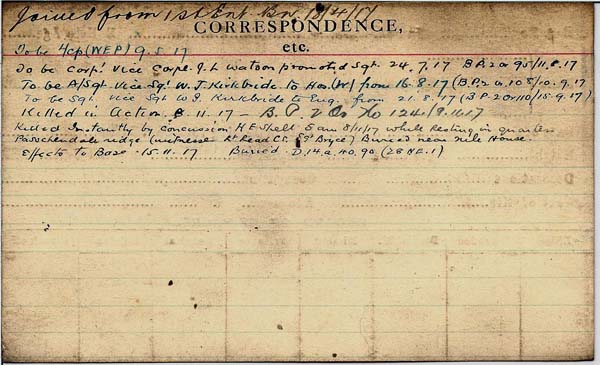 Joined from 1st Ent. Bn. 18/4/17
CORRESPONDENCE,
etc.
To be 4cpl (WEP) 9.5.17
To be Corpl vice Corpl J. L. Watson promoted Sgt. 24.7.17 BP2 or 95/11.8.17
To be A/Sgt. vice Sgt W. J. Kirkbride to Hos. (W) from 16-8-17 (BP2 or 108/10.9.17
To be Sgt. vice Sgt W J. Kirkbride to Eng. from 21.8.17 (BP.2 or 110/15.9.17)
Killed in Action 8-11-17 - B.P.2 Or No 124/
Killed Instantly by concussion H E Shell 5am 8/11/17 while Resting in quarters
Passchendale ridge (witnesses Lt Read Cpl Bryce) Buried near Nile House
Effects to Base 15.11.17 Buried D.14.a.40.90 (28 NE.1)